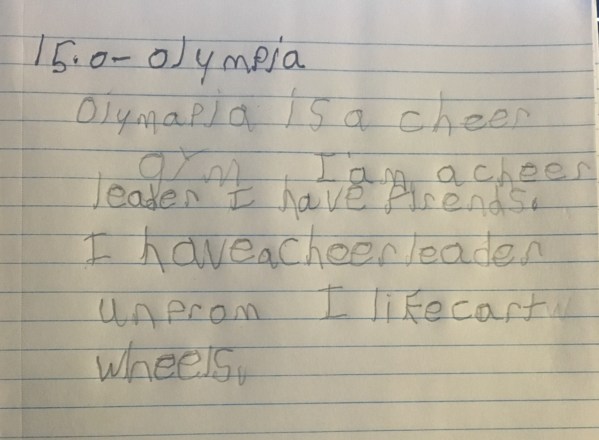 15.0- olympia
Olymapia is a cheer
gym I am a cheer
leader I have firends.
I have a cheer leader
unprom I like cart
wheels.